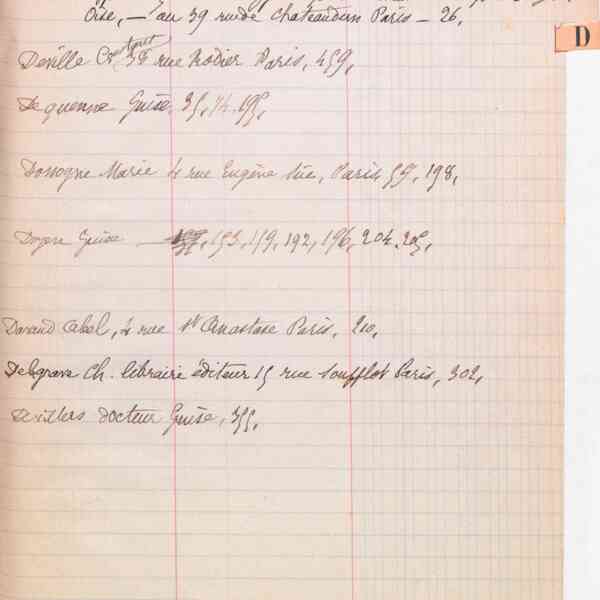 Oise, — au 39 rue de Chateaudun Paris — 26,
D
Deville 38 rue Nodier Paris, 459,
Dequenne Guise, 35, 74, 195,
Dossogne Marie 4 rue Eugène Süe, Paris 59, 198,
Doyen Guise — 153, 159, 192, 196, 204, 205,
Durand Abel, 4 rue St Anastase Paris, 210,
Delagrave Ch. libraire éditeur 15 rue Soufflot Paris, 302,
Devillers docteur Guise, 355,